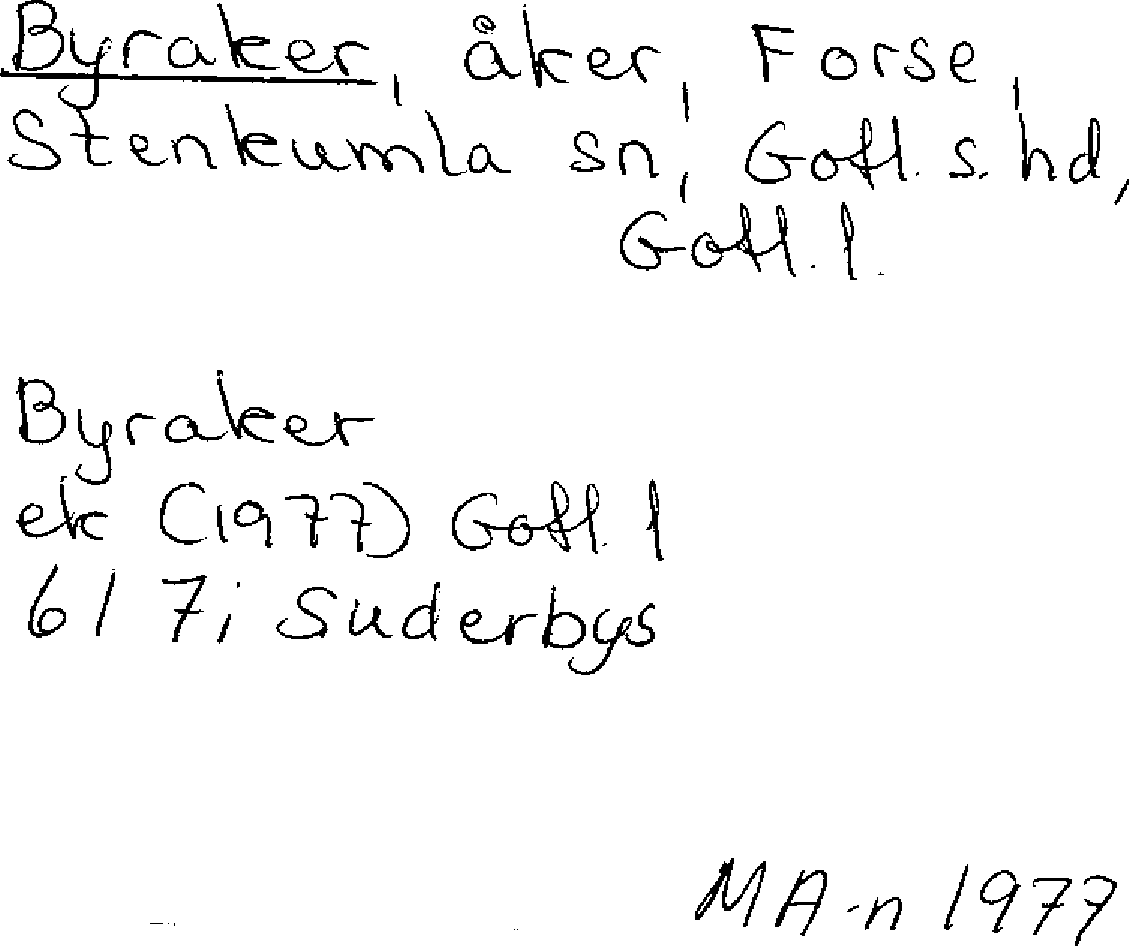 Byraker, åker, Forse,
Stenkumla sn, Gotl. s. hd,
Gotl. l.
Byraker
ek (1977) Gotl. l
6I 7i Suderbys
MA-n 1977